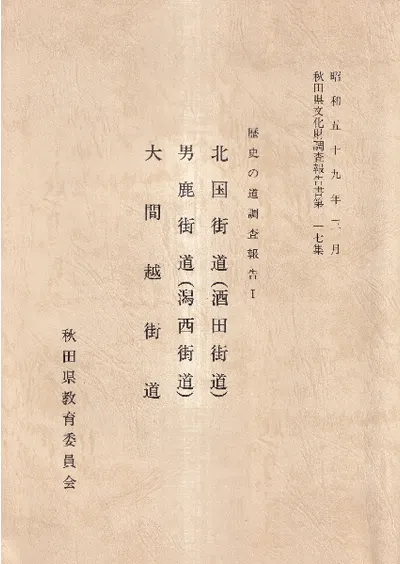 昭和五十九年三月
秋田県文化財調査報告書第一一七集
歴史の道調査報告Ⅰ
北国街道(酒田街道)
男鹿街道(潟西街道)
大間越街道
秋田県教育委員会